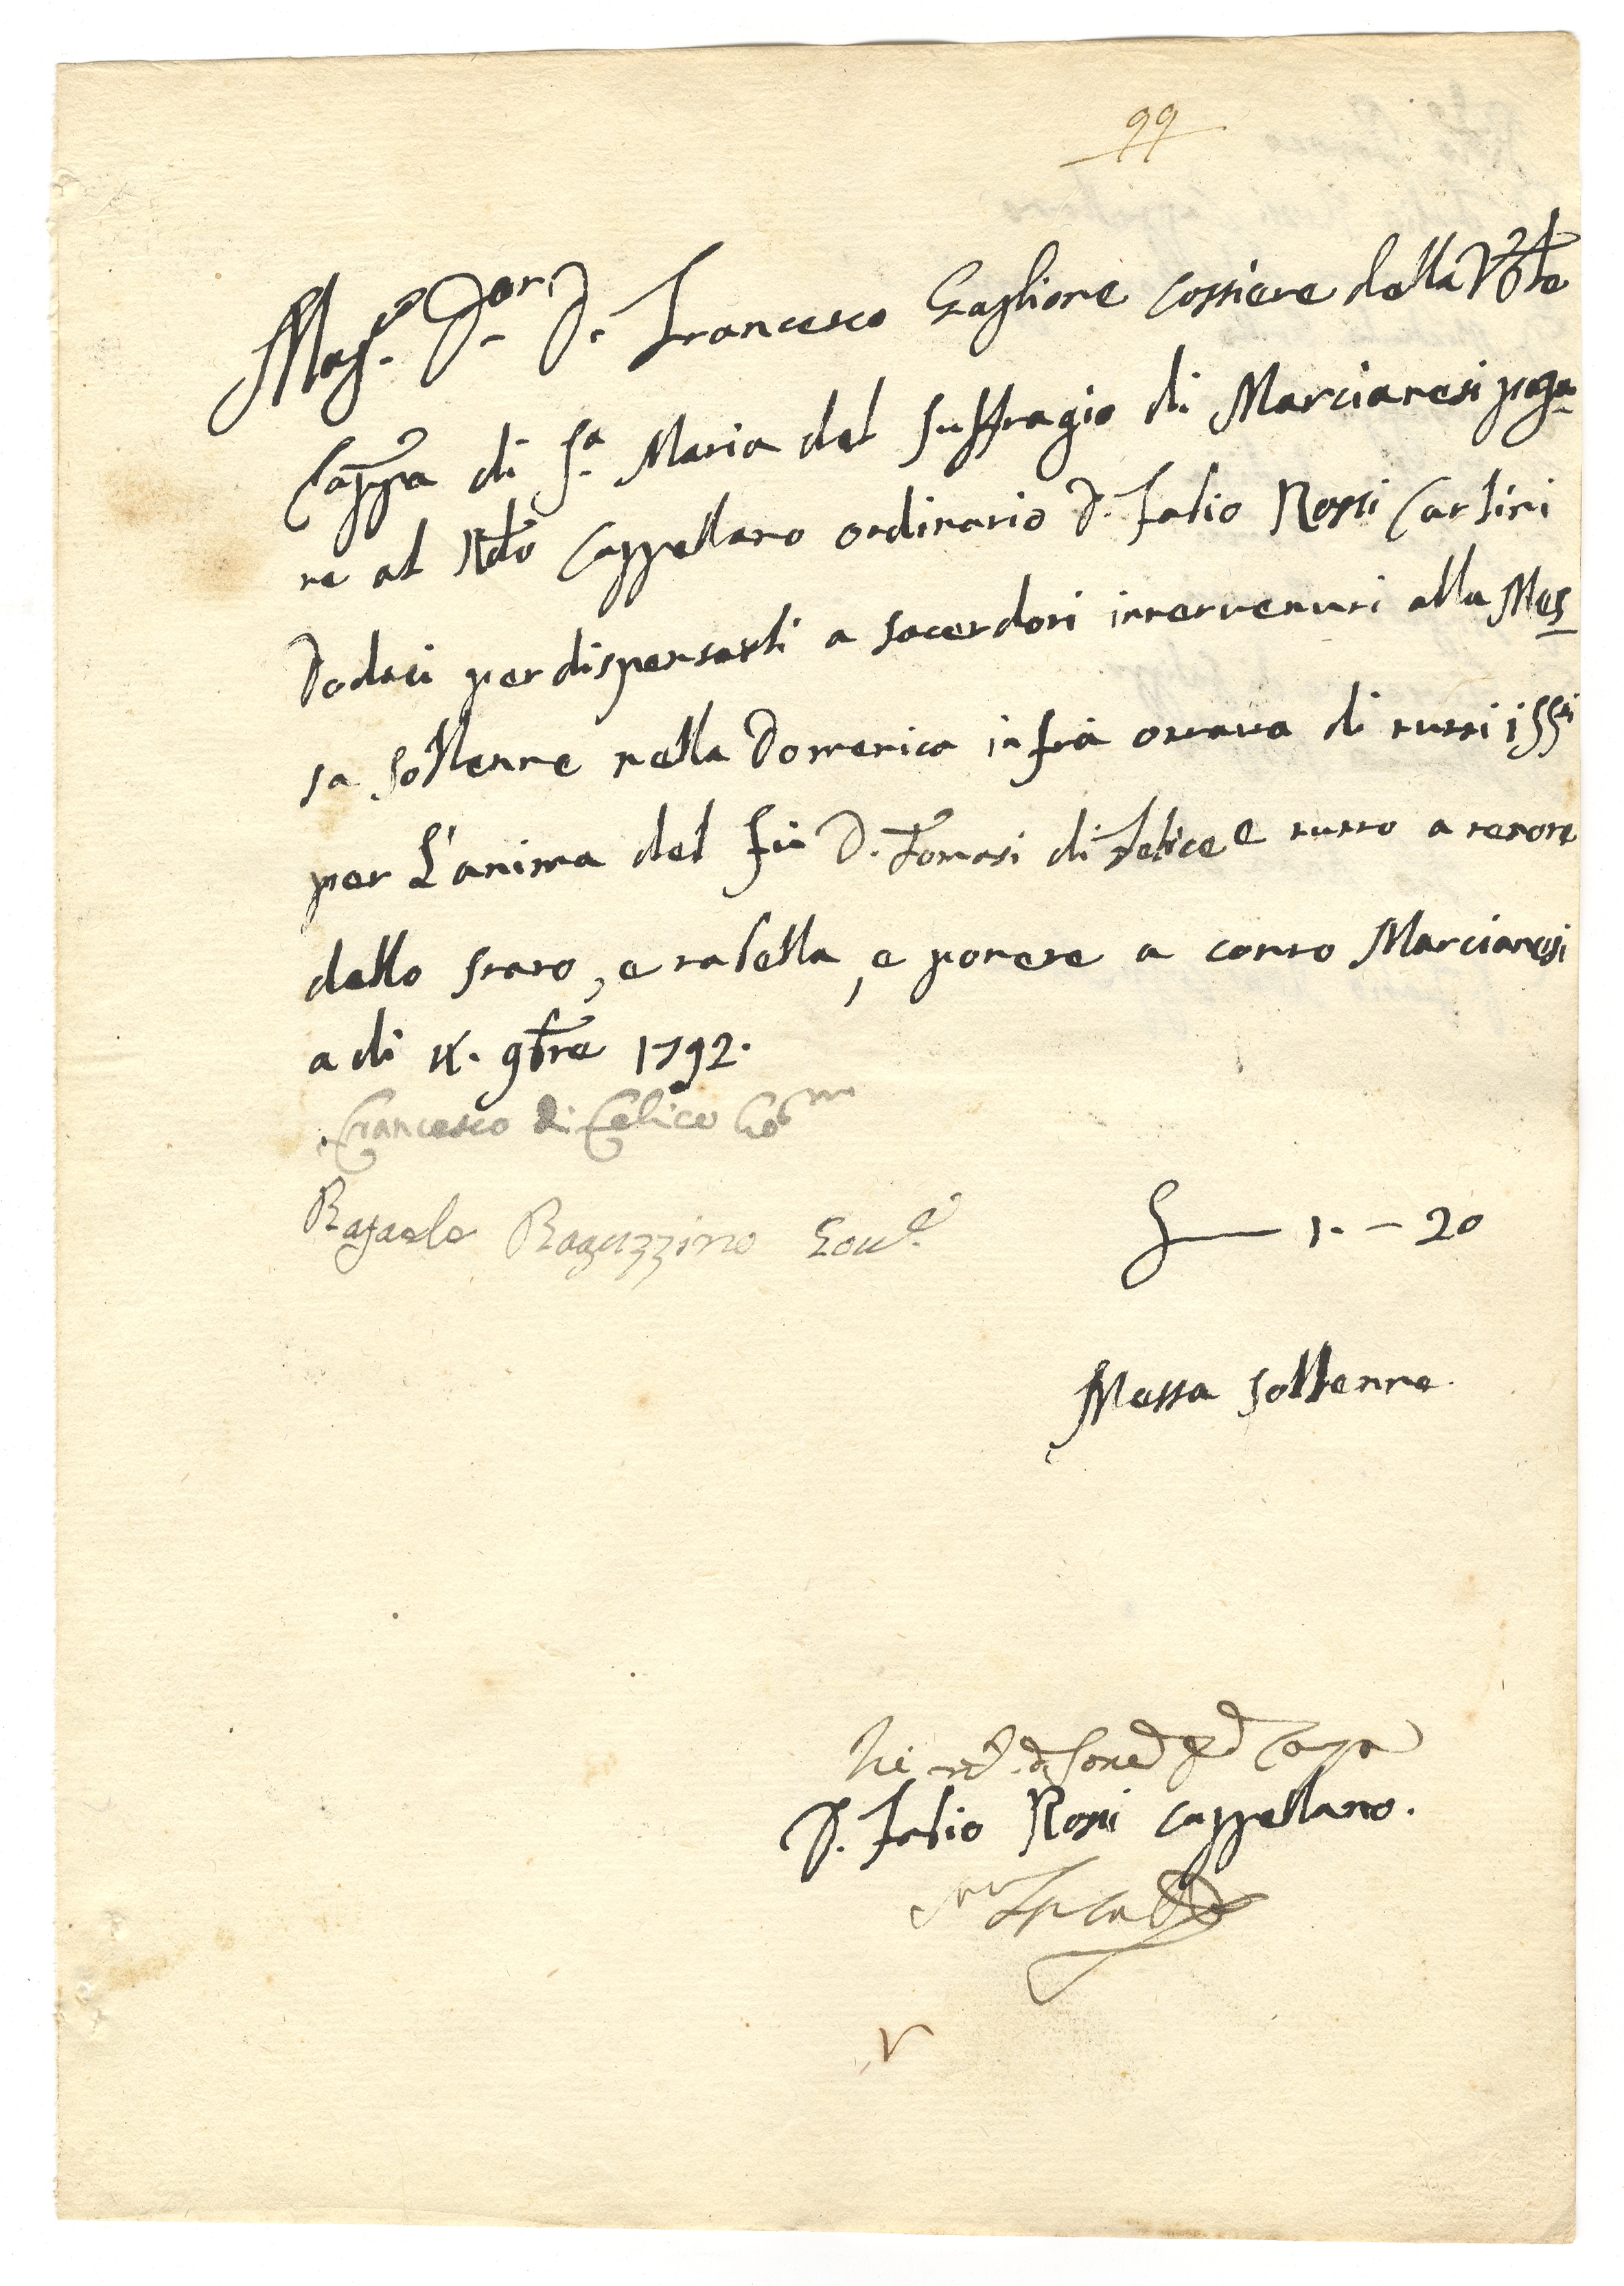 99
Mag.co D.or D. Francesco Gaglione Cassiere della V.ble
Capp.a di S.a Maria del Suffragio di Marcianesi paga-
re al R.do Cappellano ordinario D. Fabio Rossi Carlini
Dodeci per dispensarli a sacerdoti intervenuti alla Mes
sa sollenne nella Domenica infrà ottava di tutti i SS.ti
per L'anima del fù D. Tomasi di Felice e tutto a tenore
dello stato, e tabella, e ponere a conto Marcianesi
a di 9bre 1792.
Francesco di Felice Go
Rafaele Raguzzino Gov.e
1.-20
Messa sollenne.
D. Fabio Rossi Cappellano.